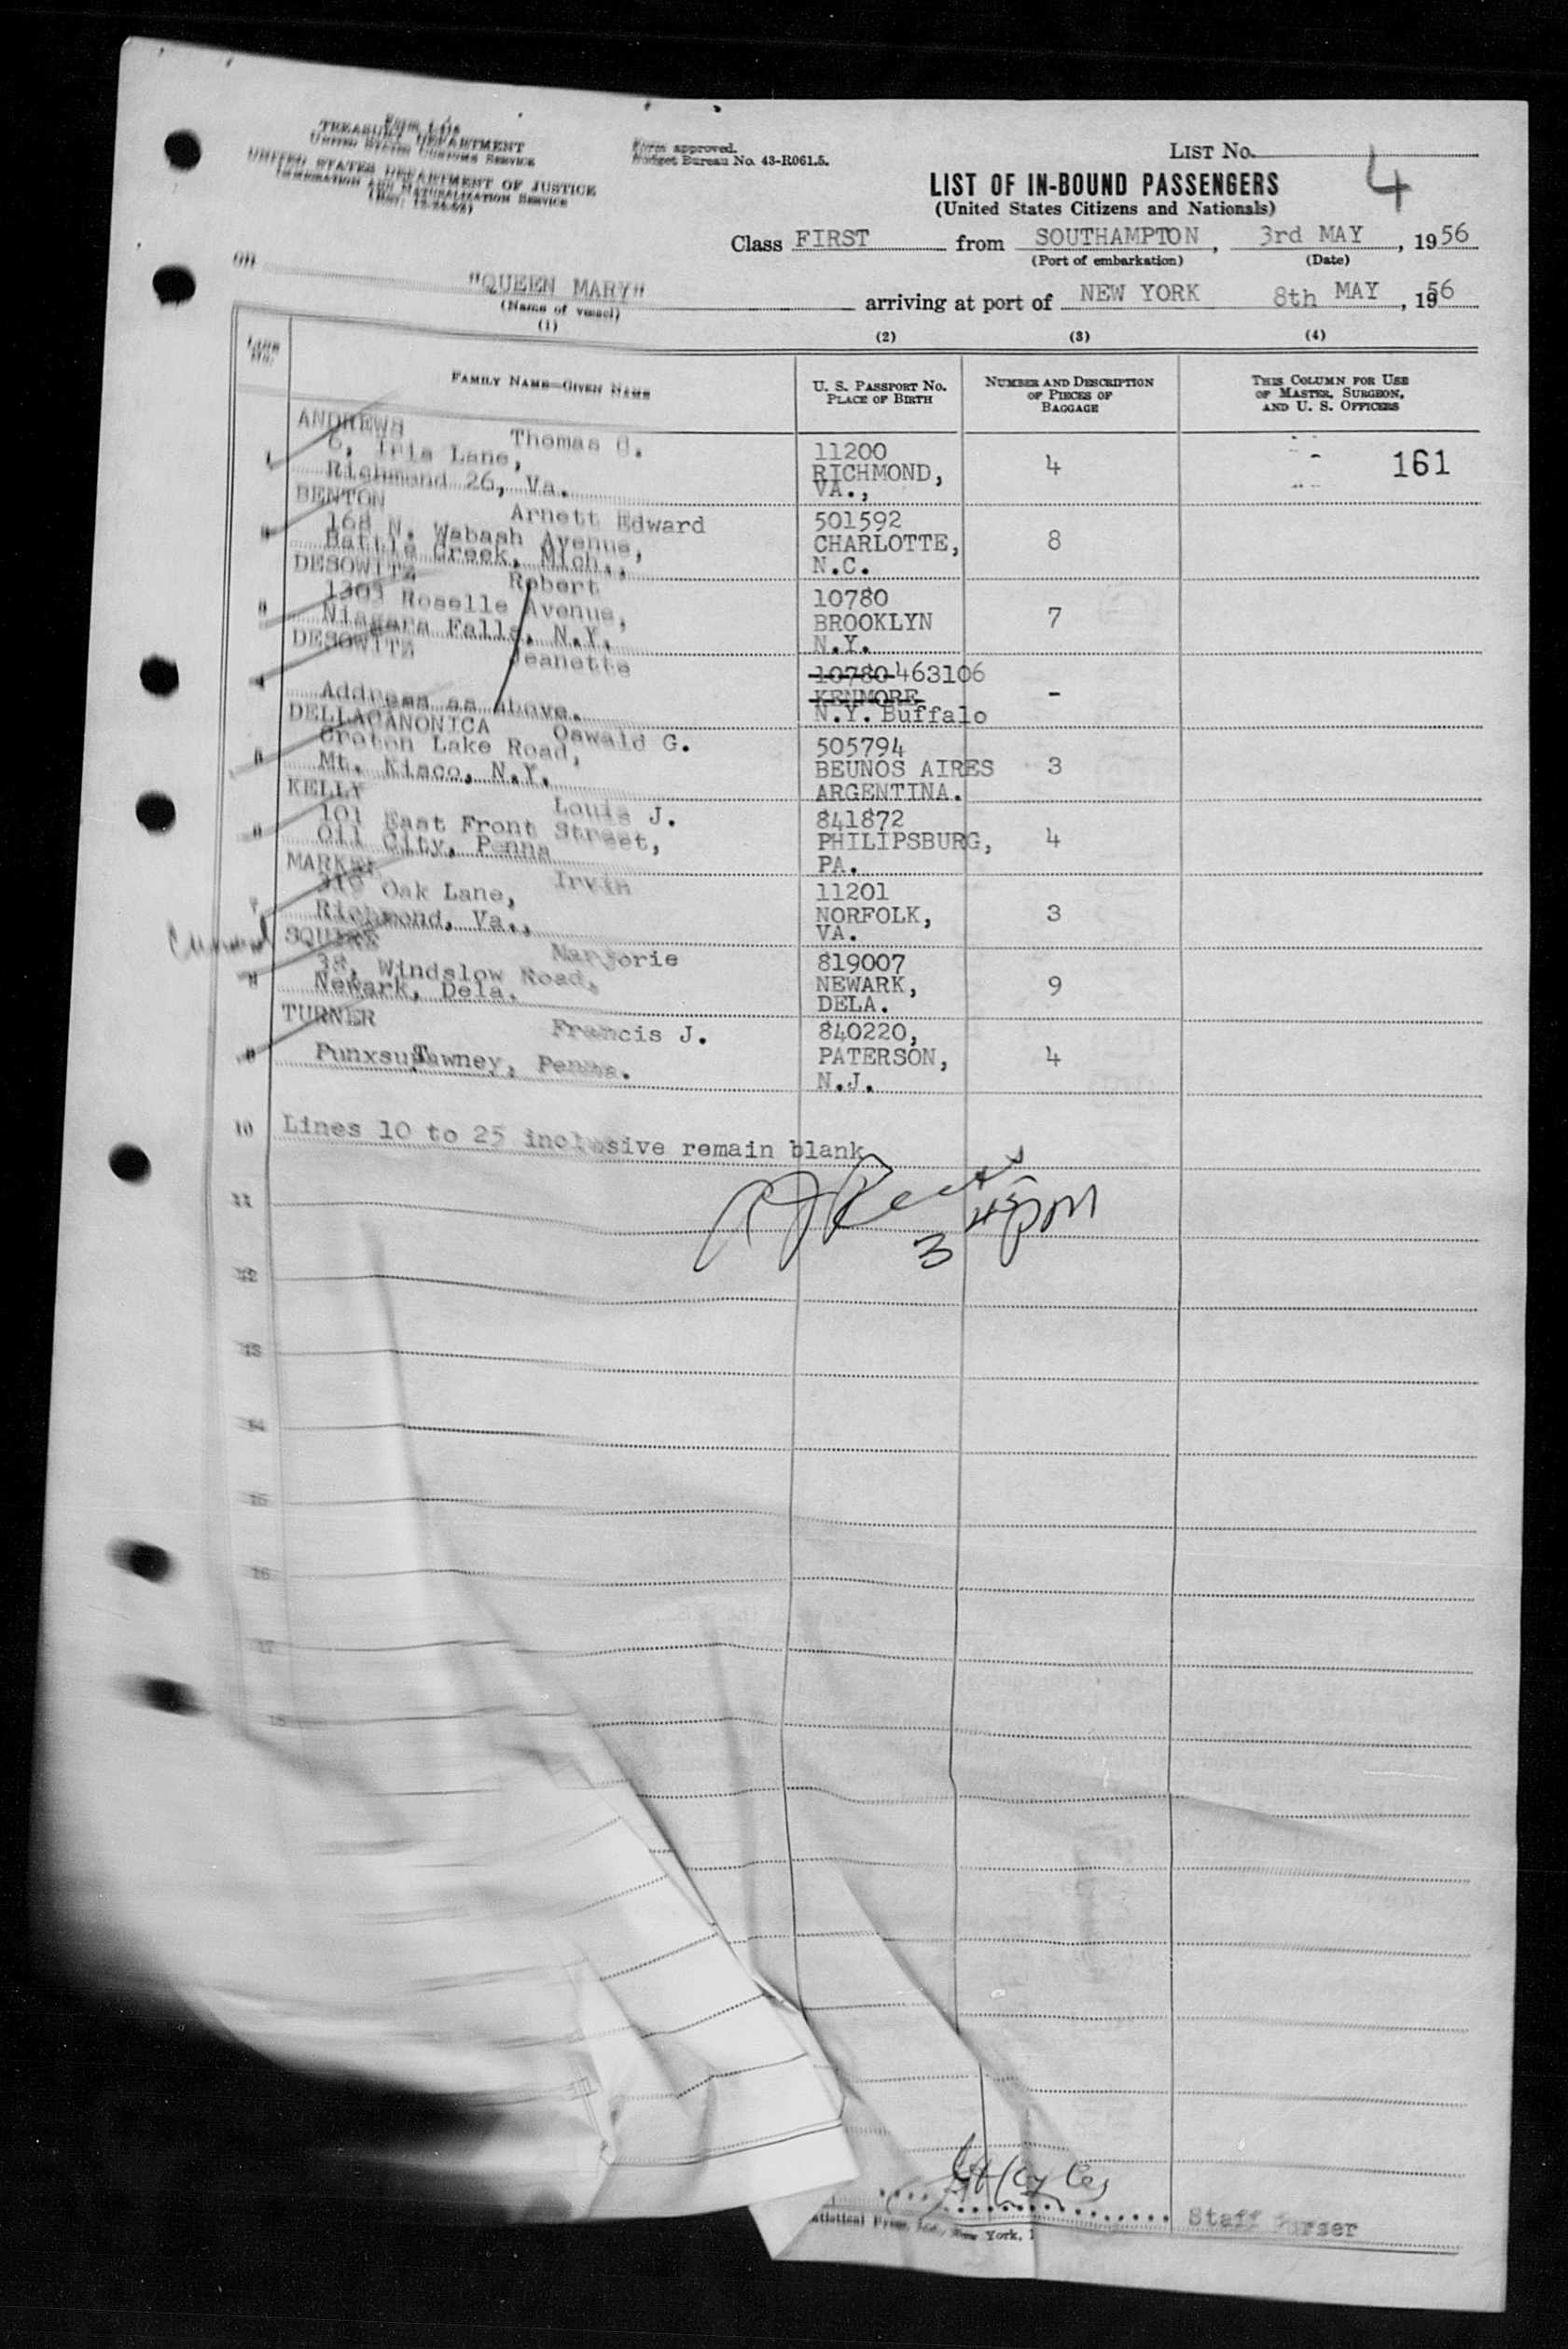 TREASURY DEPARTMENT
UNITED STATES CUSTOMS SERVICE
UNITED STATES DEPARTMENT OF JUSTICE
IMMIGRATION AND NATURALIZATION SERVICE
Form approved.
Budget Bureau No. 43-R061.5.
LIST No.
4
LIST OF IN-BOUND PASSENGERS
(United States Citizens and Nationals)
Class FIRST from SOUTHAMPTON, 3rd MAY, 1956
(Port of embarkation) (Date)
on "QUEEN MARY" arriving at port of NEW YORK 8th MAY, 1956
(Name of vessel)
(1) (2) (3) (4)
Line No.
FAMILY NAME—GIVEN NAME
U. S. PASSPORT No.
PLACE OF BIRTH
NUMBER AND DESCRIPTION
OF PIECES OF
BAGGAGE
THIS COLUMN FOR USE
OF MASTER, SURGEON,
AND U. S. OFFICERS
ANDREWS Thomas
6, Iris Lane, 11200
Richmond 26, Va. RICHMOND, 4 161
VA.,
BENTON Arnett Edward 501592
168 N. Wabash Avenue, CHARLOTTE, 8
Battle Creek, Mich., N.C.
DESOWITZ Robert 10780
1303 Roselle Avenue, BROOKLYN 7
Niagara Falls, N.Y. N.Y.
DESOWITZ Jeanette 10780 463106
KENMORE -
Address as above. N.Y. Buffalo
DELLACANONICA Oswald G. 505794
Croton Lake Road, BEUNOS AIRES 3
Mt. Kisco, N.Y. ARGENTINA.
KELLY Louis J. 841872
101 East Front Street, PHILIPSBURG, 4
Oil City, Penna PA.
Irvin 11201
Oak Lane, NORFOLK, 3
Richmond, Va., VA.
SQUIRE Marjorie 819007
38, Windslow Road, NEWARK, 9
Newark, Dela. DELA.
TURNER Francis J. 840220,
PunxsuTawney, Penna. PATERSON, 4
N.J.
10 Lines 10 to 25 inclusive remain blank
11
3 45 PM
12
13
14
15
16
17
18
Staff Purser
New York,